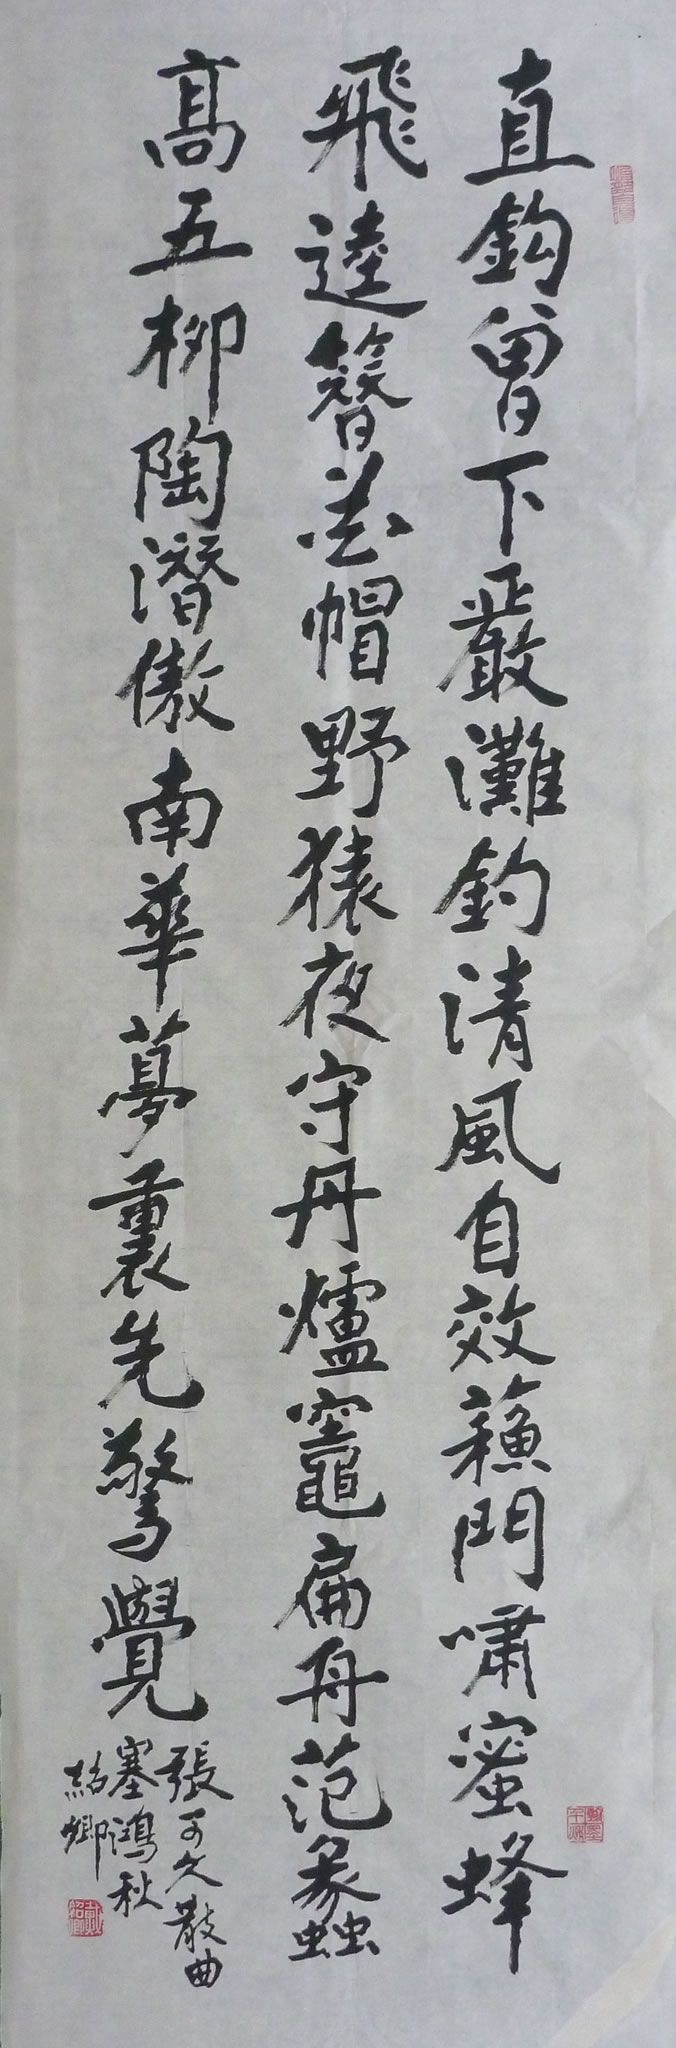 直鈎曾下嚴灘釣清風自效蘓門嘯蜜蜂
飛遶簪花帽野猿夜守丹爐竈扁舟范蠡
高五柳陶潛傲南華夢裏先驚覺
張可久散曲
塞鴻秋
紹卿